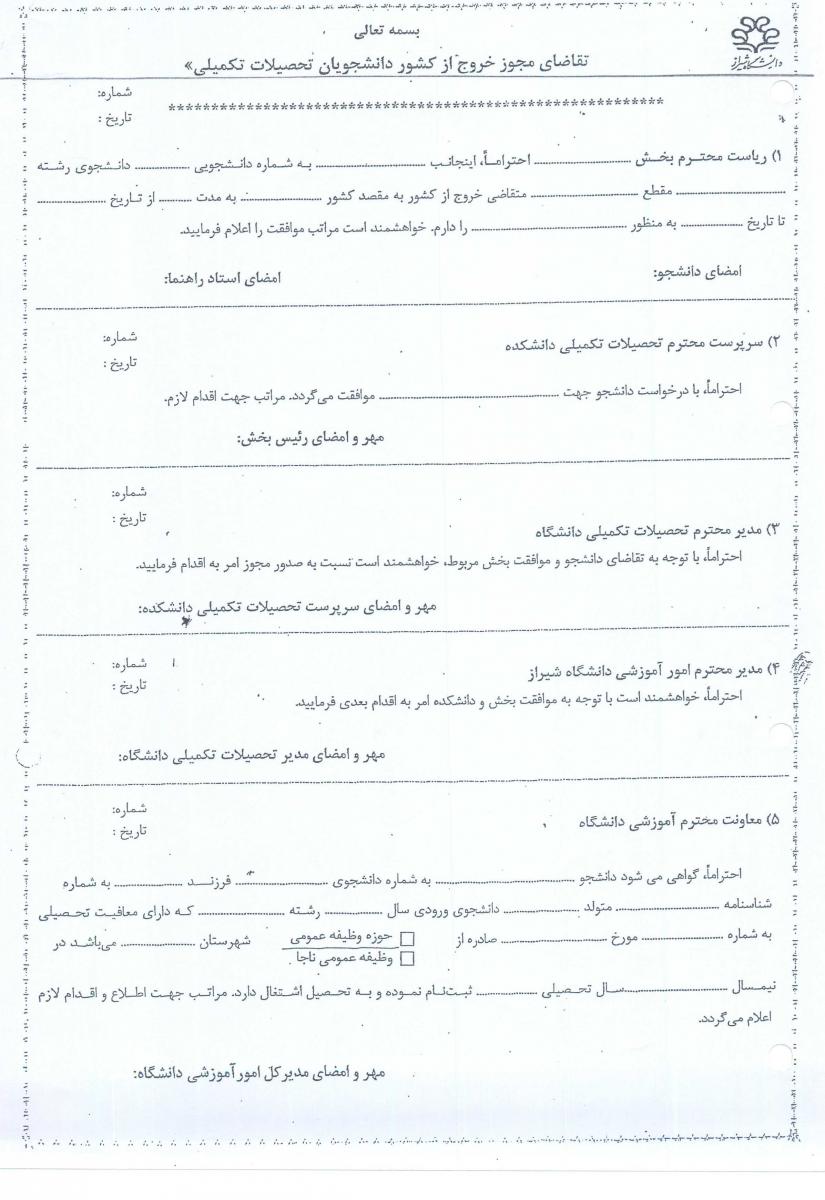 بسمه تعالی
دانشگاه شیراز
تقاضای مجوز خروج از کشور دانشجویان تحصیلات تکمیلی»
شماره:
تاریخ :
************************************************************
۱) ریاست محترم بخش .................... احتراماً، اینجانب .................... به شماره دانشجویی ............ دانشجوی رشته
.................... مقطع .................... متقاضی خروج از کشور به مقصد کشور .................... به مدت .......... از تاریخ ..............
تا تاریخ .............. به منظور .............................. را دارم. خواهشمند است مراتب موافقت را اعلام فرمایید.
امضای دانشجو: امضای استاد راهنما:
شماره:
۲) سرپرست محترم تحصیلات تکمیلی دانشکده
تاریخ :
احتراماً، با درخواست دانشجو جهت ........................................ موافقت می‌گردد. مراتب جهت اقدام لازم.
مهر و امضای رئیس بخش:
شماره:
تاریخ :
۳) مدیر محترم تحصیلات تکمیلی دانشگاه
احتراماً، با توجه به تقاضای دانشجو و موافقت بخش مربوط، خواهشمند است نسبت به صدور مجوز امر به اقدام فرمایید.
مهر و امضای سرپرست تحصیلات تکمیلی دانشکده:
شماره:
۴) مدیر محترم امور آموزشی دانشگاه شیراز
تاریخ :
احتراماً، خواهشمند است با توجه به موافقت بخش و دانشکده امر به اقدام بعدی فرمایید.
مهر و امضای مدیر تحصیلات تکمیلی دانشگاه:
شماره:
۵) معاونت محترم آموزشی دانشگاه
تاریخ :
احتراماً، گواهی می شود دانشجو .............................. به شماره دانشجوی .................... فرزنـــد .............. به شماره
شناسنامه .................... متولد .............. دانشجوی ورودی سال ............ رشته .................. که دارای معافیت تحصیلی
به شماره ................ مورخ .................... صادره از □ حوزه وظیفه عمومی شهرستان .............. می‌باشد در
□ وظیفه عمومی ناجا
نیمسال .................... سال تحصیلی ............ ثبت‌نام نموده و به تحصیل اشتغال دارد. مراتب جهت اطلاع و اقدام لازم
اعلام می‌گردد.
مهر و امضای مدیرکل امورآموزشی دانشگاه: